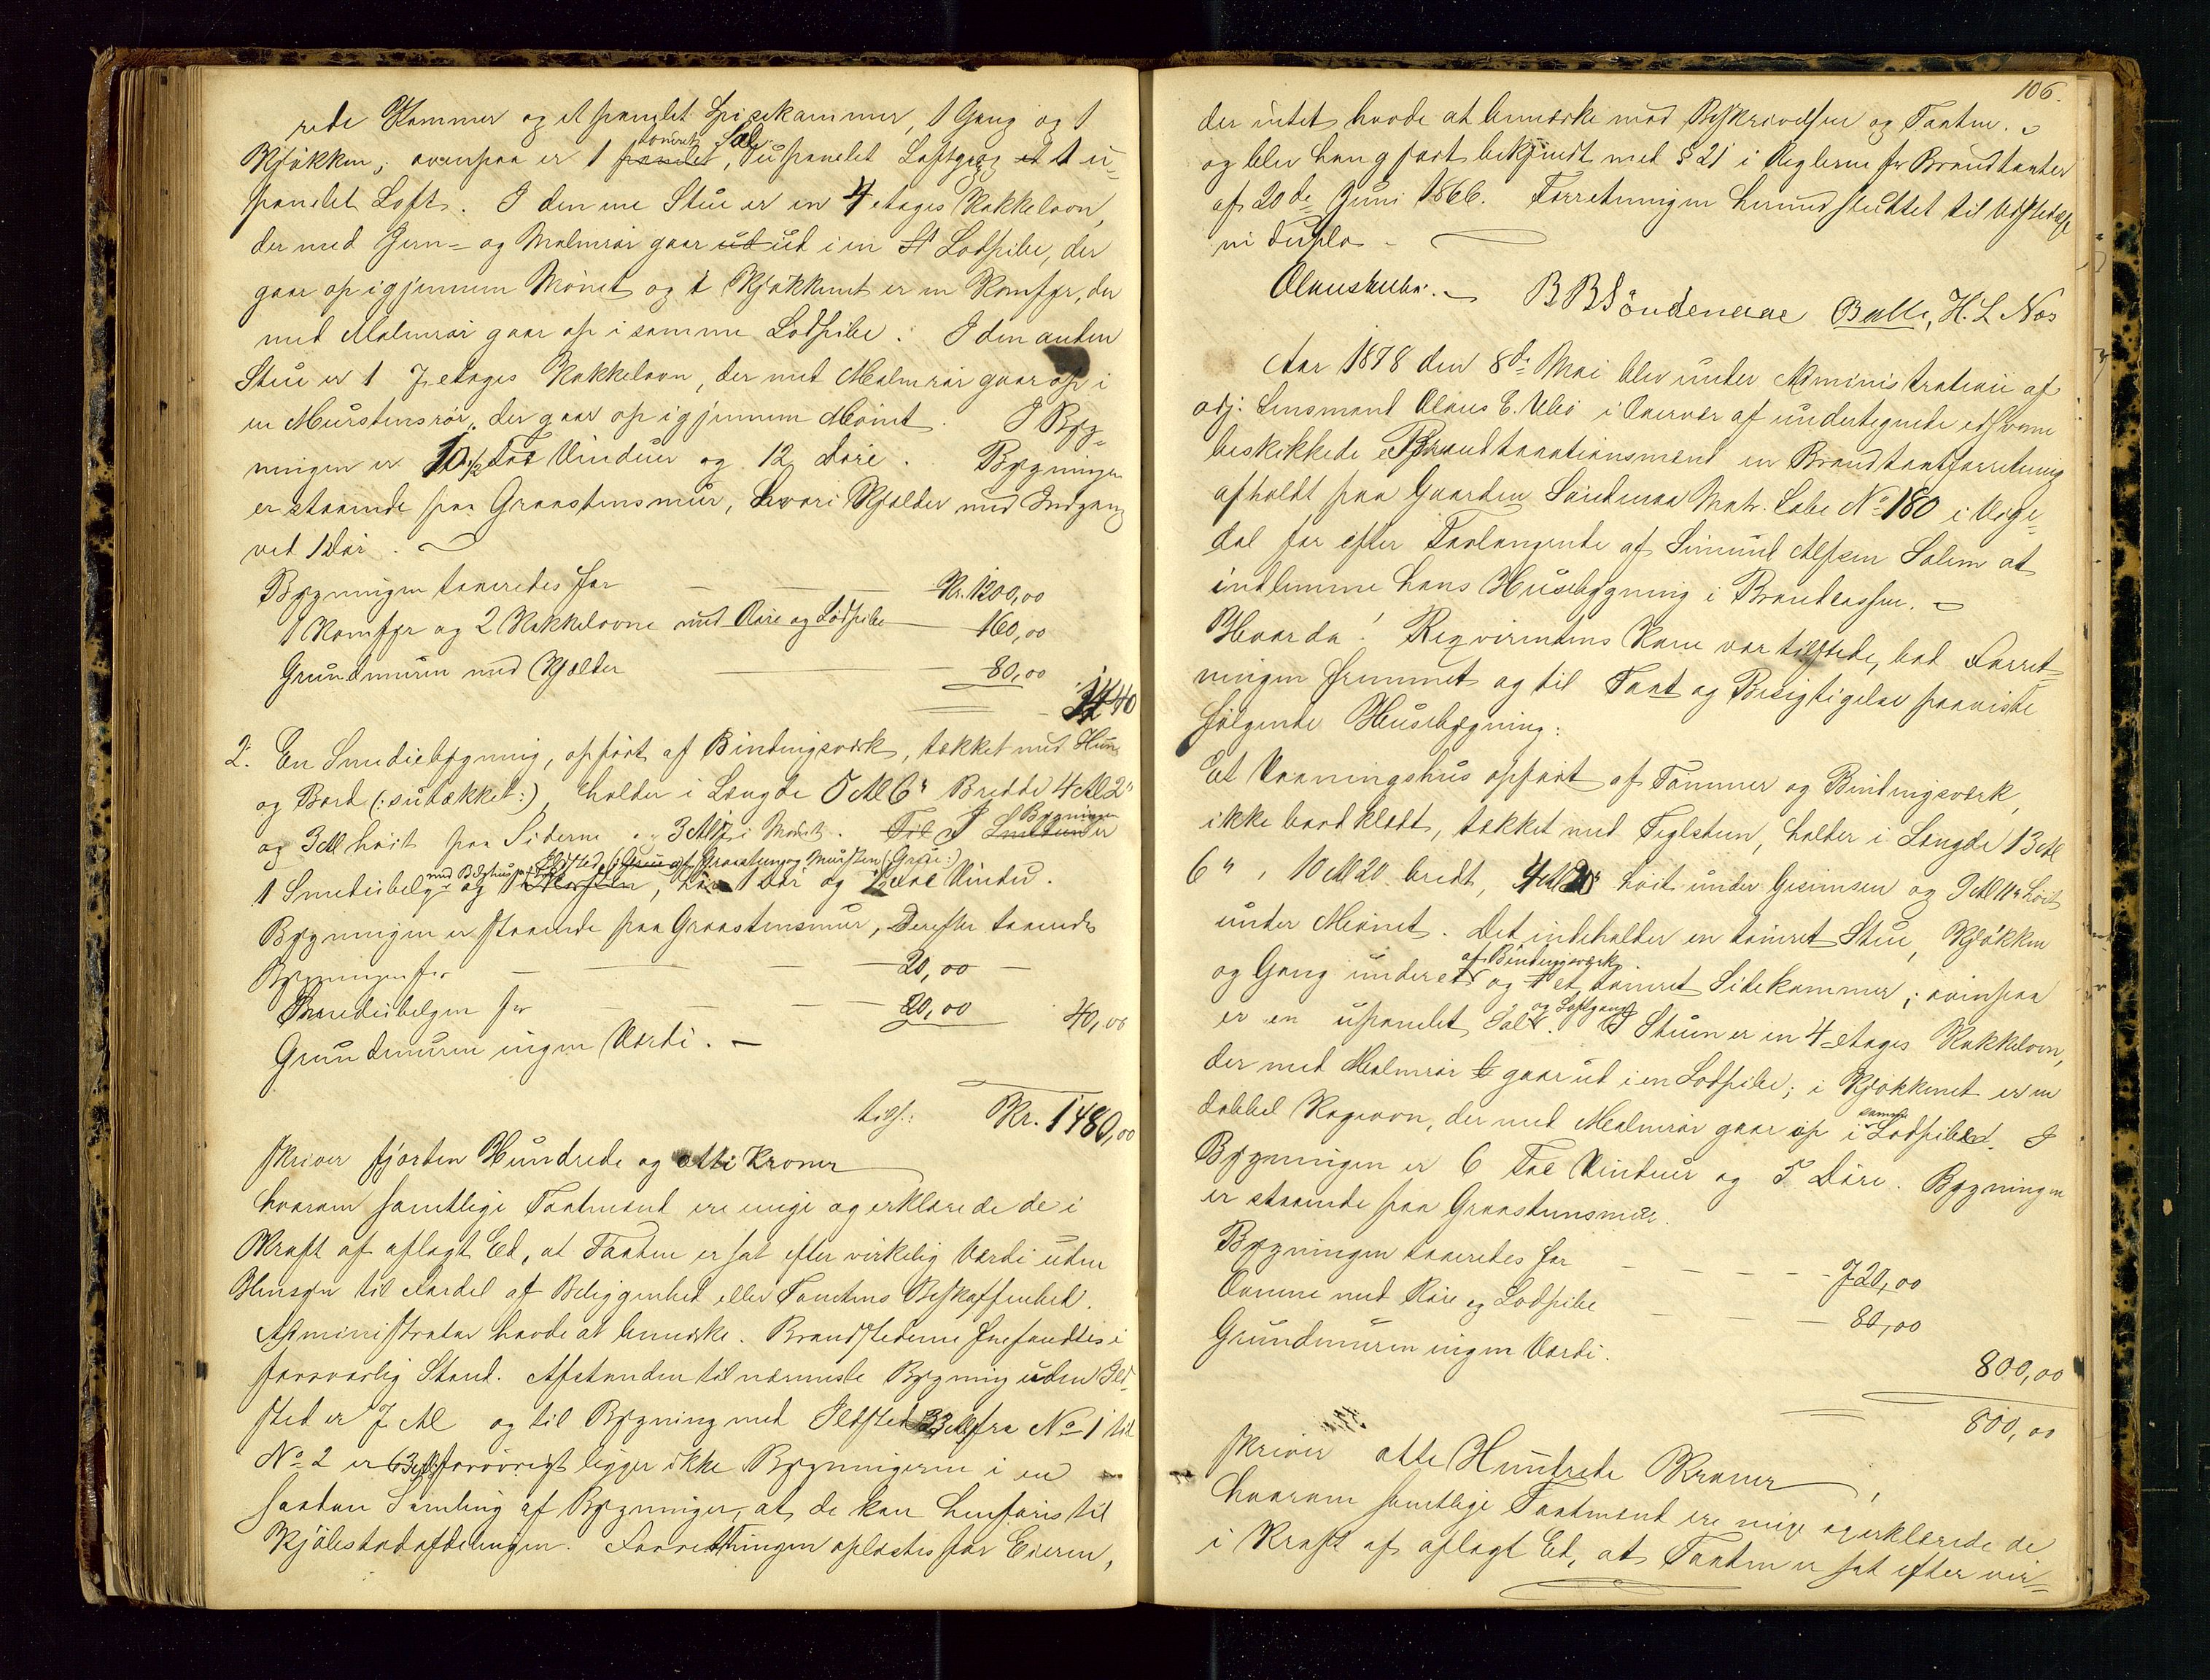 rede Kammer og et panelet Spisekammer, 1 Gang og 1
Kjøkken; ovenpaa er 1 panelet tømret Sal, 1 upanelet Loftgang og et 1 u-
panelet Loft. I den ene Stue er en 4 etages Kakkelovn,
der med Jern- og Malmrør gaar ud ud i en Lodpibe, der
gaar op igjennem Mønet og i Kjøkkenet er en Komfyr, der
med Malmrør gaar op i samme Lodpibe. I den anden
Stue er 1 3 etages Kakkelovn, der med Malmrør gaar op i
en Murstensrør, der gaar op igjennem Mønet. I Byg-
ningen er 10 1/2 Fag Vinduer og 12 Døre. Bygningen
er staaende paa Graastensmur, hvori Kjælder med Indgang
ved 1 Dør.
Bygningen taxeredes for Kr. 1200,00
1 Komfyr og 2 Kakkelovne med Røre og Lodpibe 160,00
Grundmuren med Kjælder 80,00
1440
2. En Smediebygning, opført af Bindingsværk, tækket med Hun
og Bord (: sutækket :), holder i Længde 5 Al 6" Bredde 4 Al 2"
og 3 Al høit paa Siderne og 3 Al i Mønet. I Bygningen er
1 Smediebelg og 1 Ildsted af Graasten og Mursten (Grue:), har 1 Dør og Vindu.
Bygningen er staaende paa Graastensmur, Derefter taxeredes
Bygningen for 20,00
Smediebelgen for 20,00 40,00
Grundmuren ingen Værdi.
tils: Kr. 1480,00
skriver fjorten Hundrede og otti Kroner
hvorom samtlige Taxtmænd ere enige og erklærede de i
Kraft af aflagt Ed, at Taxten er sat efter virkelig Værdi uden
Hensyn til Fordel af Beliggenhed eller Tomtens Beskaffenhed.
Administrator havde at bemærke. Brandstederne forefandtes i
forsvarlig Stand. Afstanden til nærmeste Bygning uden Ild-
sted er 7 Al og til Bygning med Ildsted 33 Al, fra No 1 til
No 2 er 63 Al, forøvrigt ligger ikke Bygningerne i en
saadan Samling af Bygninger, at de kan henføres til
Kjøbstadafdelingen. Forretningen oplæstes for Eieren,
106.
der intet havde at bemærke mod Beskrivelsen og Taxten.
og blev han gjort bekjendt med § 21 i Reglerne for Brandtaxter
af 20de Juni 1866. Forretningen hermed sluttet til Udstedelse
in duplo.
Olaus Ulbø. B B Söndenaae Balle, H. L Nos
Aar 1878 den 8de Mai blev under Administration af
adj. Lensmand Olaus E. Ulbø i Overvær af undertegnede edsvorne
beskikkede Brandtaxationsmænd en Brandtaxtforretning
afholdt paa Gaarden Söndenaa Matr. Løbe No 180 i Urge-
dal for efter Forlangende af Simund Alfsen Solem at
indlemme hans Husebygning i Brandkassen.
Hvorda! Reqvirentens Kone var tilstede, bad Forret-
ningen fremmet og til Taxt og Besigtigelse paaviste
følgende Husebygning:
Et Vaaningshus opført af Tømmer og Bindingsværk,
ikke bordklædt, tækket med Teglsten, holder i Længde 13 Al
6", 10 Al 20 bredt, 4 Al 20" høit under Gesimsen og 9 Al 11" høit
under Mønet. Det indeholder en tømret Stue, Kjøkken
og Gang underet af Bindingsværk og et tømret Sidekammer; ovenpaa
er en upanelet Sal og Loftgang. I Stuen er en 4-etages Kakkelovn,
der med Malmrør gaar ud i en Lodpibe; i Kjøkkenet er en
dobbel Kogeovn, der med Malmrør gaar op i samme Lodpibe. I
Bygningen er 6 Fag Vinduer og 5 Døre. Bygningen
er staaende paa Graastensmur.
Bygningen taxeredes for 720,00
Ovnene med Røre og Lodpibe 80,00
Grundmuren ingen Værdi.
800,00
800,00
skriver otte Hundrede Kroner
hvorom samtlige Taxtmænd ere enige og erklærede de
i Kraft af aflagt Ed, at Taxten er sat efter vir-